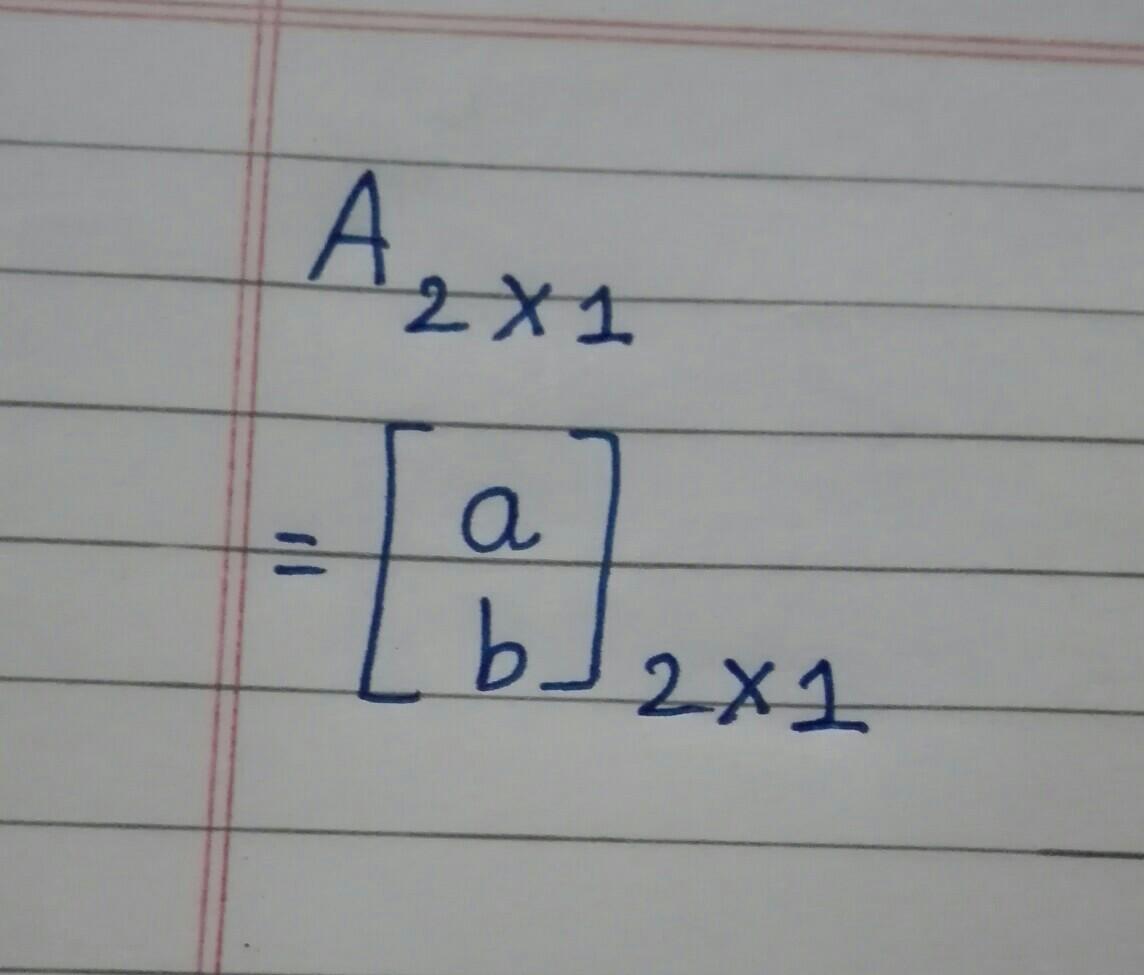 A 2 × 1
= [ a
b ] 2 × 1